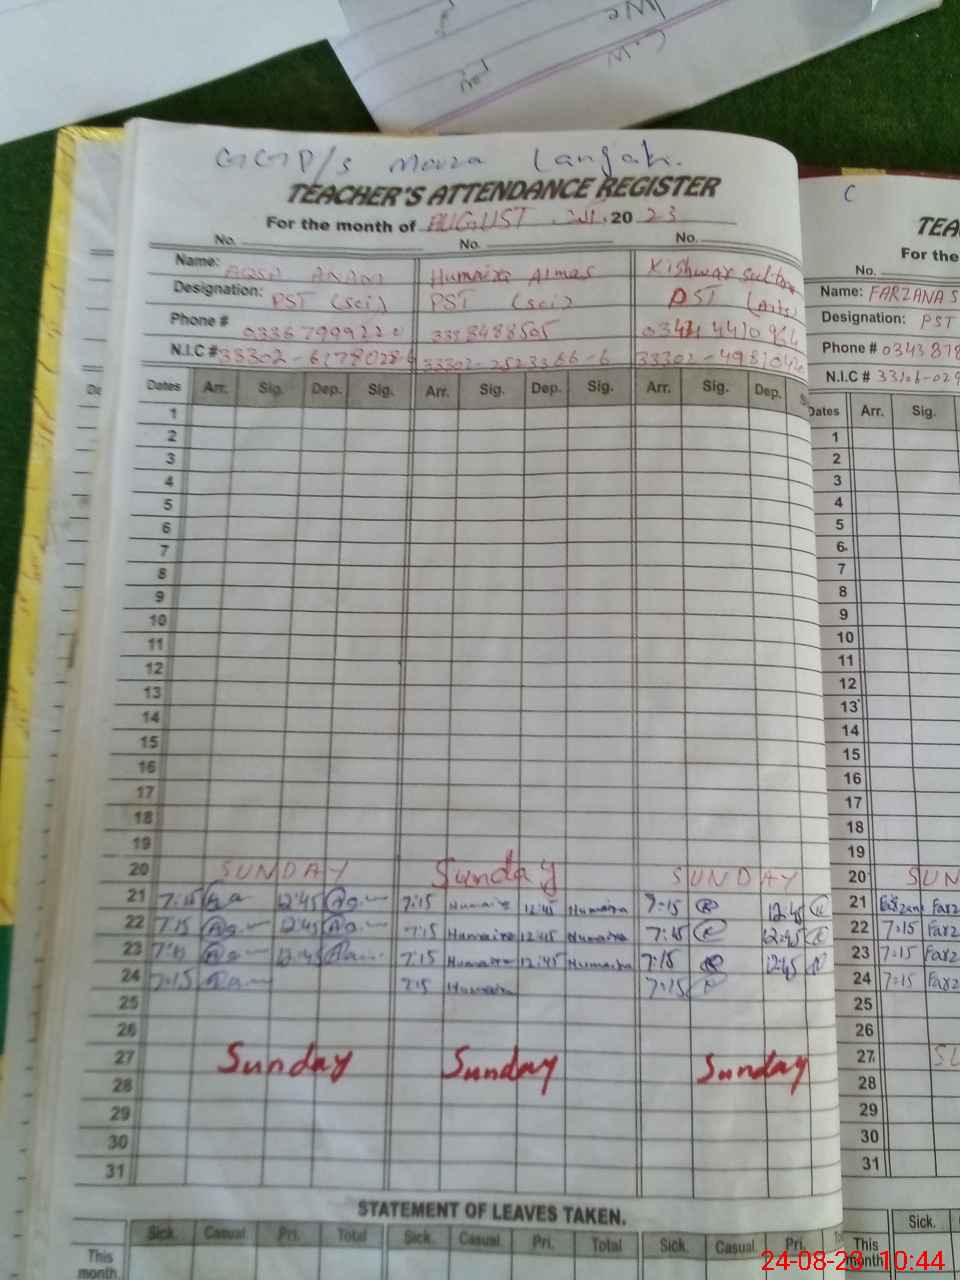 GGP/s Mouza Langah.
TEACHER'S ATTENDANCE REGISTER
For the month of AUGUST 2023
No. No. No.
Name: AQSA ANAM Humaira Almas Kishwar Sultan
Designation: PST (sci) PST (sci) PST (Arts)
Phone #
N.I.C #
Dates Arr. Sig. Dep. Sig. Arr. Sig. Dep. Sig. Arr. Sig. Dep.
1
2
3
4
5
6
7
8
9
10
11
12
13
14
15
16
17
18
19
20 SUNDAY Sunday SUNDAY
21 7:15 12:45 7:15 Humaira 12:45 Humaira 7:15 12:45
22 7:15 12:45 7:15 Humaira 12:45 Humaira 7:15 12:45
23 7:15 12:45 7:15 Humaira 12:45 Humaira 7:15 12:45
24 7:15 7:15 Humaira 7:15
25
26
27 Sunday Sunday Sunday
28
29
30
31
STATEMENT OF LEAVES TAKEN.
Sick. Casual Pri. Total Sick. Casual Pri. Total Sick. Casual Pri.
This month.
C
TEA
For the
No.
Name: FARZANA S
Designation: PST
Phone # 0343
N.I.C #
Dates Arr. Sig.
1
2
3
4
5
6
7
8
9
10
11
12
13
14
15
16
17
18
19
20 SUN
21 Farzana Farz
22 7:15 Farz
23 7:15 Farz
24 7:15 Farz
25
26
27 SU
28
29
30
31
Sick.
This month
24-08-23 10:44